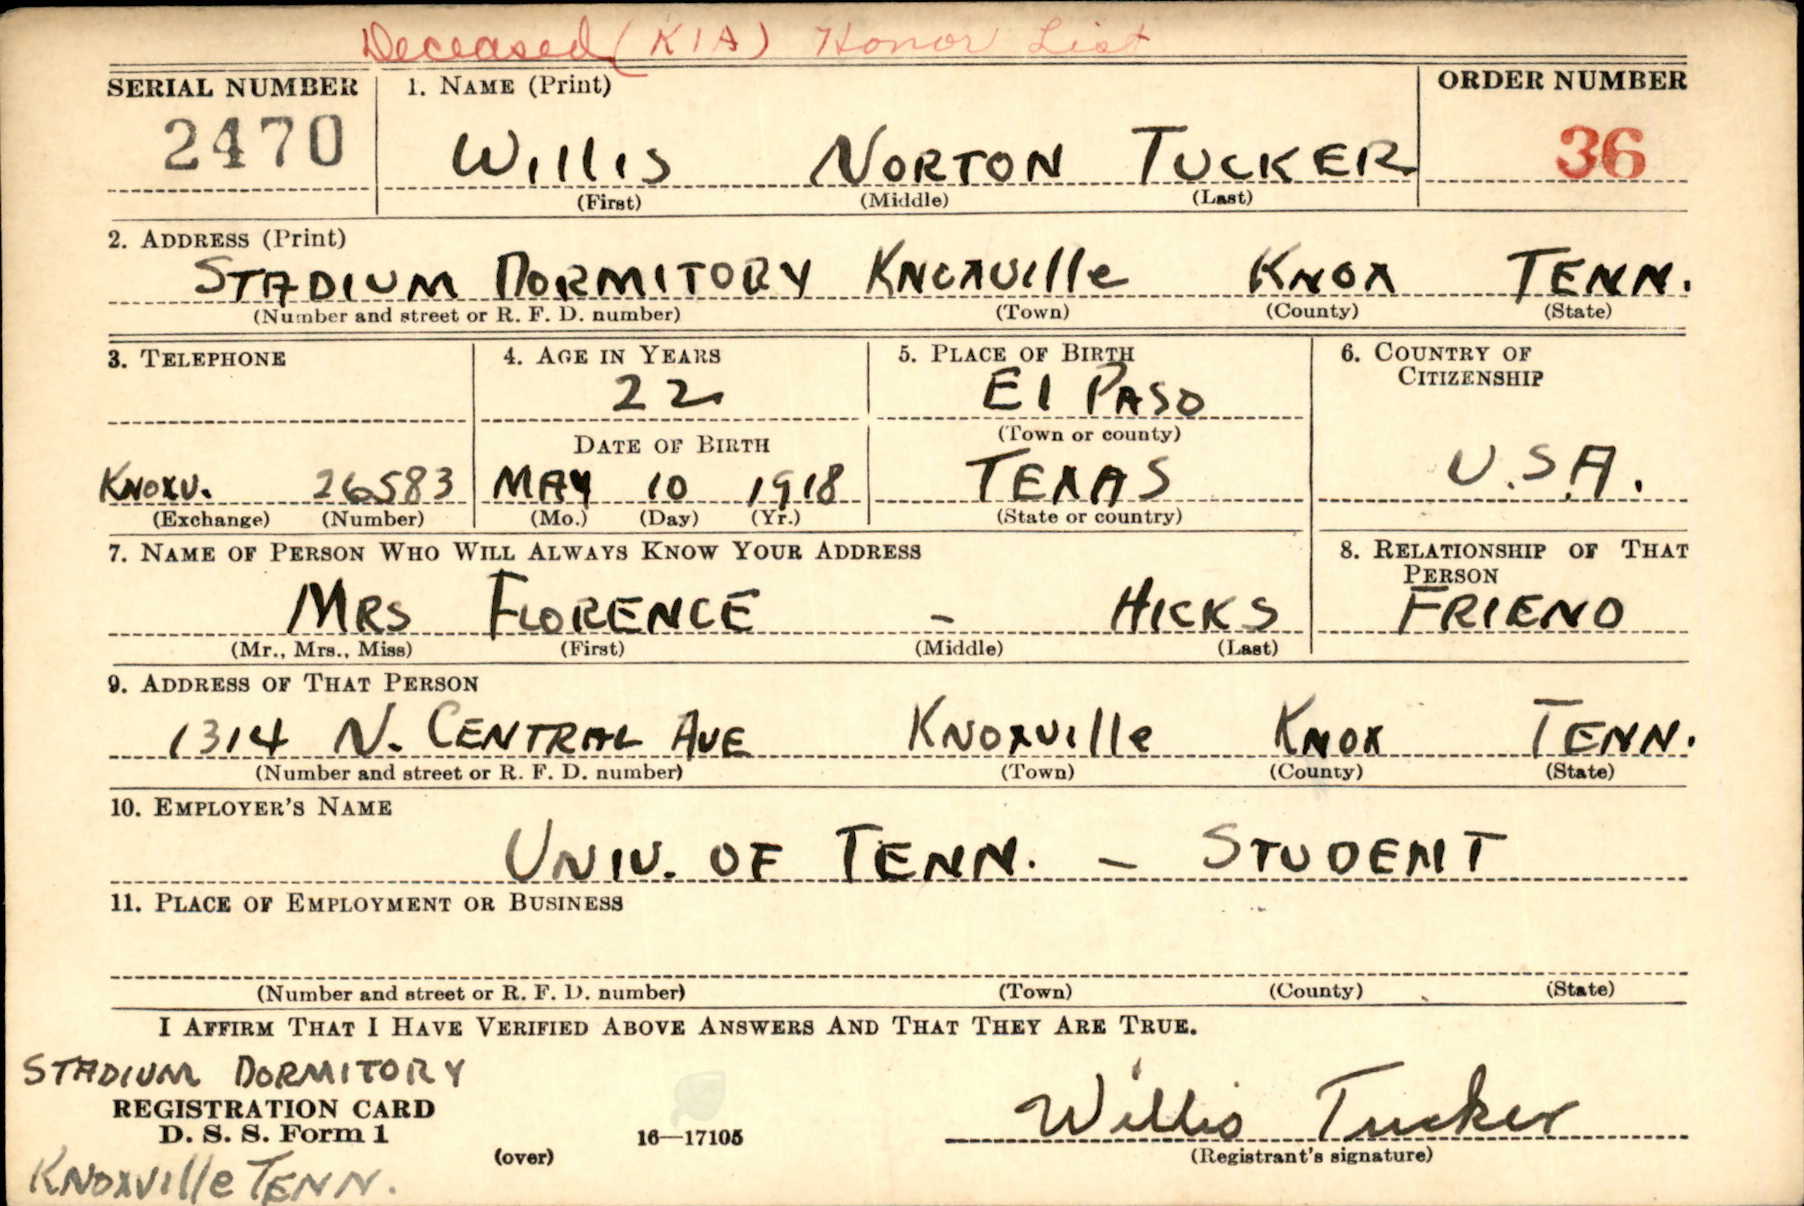 Deceased (KIA) Honor List
SERIAL NUMBER 1. NAME (Print) ORDER NUMBER
2470 WIllIS NORTON TUCKER 36
(First) (Middle) (Last)
2. ADDRESS (Print)
STADIUM DORMITORY KNOXVIlle KNOX TENN.
(Number and street or R. F. D. number) (Town) (County) (State)
3. TELEPHONE 4. AGE IN YEARS 5. PLACE OF BIRTH 6. COUNTRY OF CITIZENSHIP
22 El PASO
DATE OF BIRTH (Town or county)
KNOXV. 26583 MAY 10 1918 TEXAS U.S.A.
(Exchange) (Number) (Mo.) (Day) (Yr.) (State or country)
7. NAME OF PERSON WHO WILL ALWAYS KNOW YOUR ADDRESS 8. RELATIONSHIP OF THAT PERSON
MRS FLORENCE - HICKS FRIEND
(Mr., Mrs., Miss) (First) (Middle) (Last)
9. ADDRESS OF THAT PERSON
1314 N. CENTRAL AVE KNOXVIlle KNOX TENN.
(Number and street or R. F. D. number) (Town) (County) (State)
10. EMPLOYER'S NAME
UNIV. OF TENN. – STUDENT
11. PLACE OF EMPLOYMENT OR BUSINESS
(Number and street or R. F. D. number) (Town) (County) (State)
I AFFIRM THAT I HAVE VERIFIED ABOVE ANSWERS AND THAT THEY ARE TRUE.
STADIUM DORMITORY
REGISTRATION CARD
D. S. S. Form 1 16—17105 Willis Tucker
(over) (Registrant's signature)
KNOXVIlle TENN.